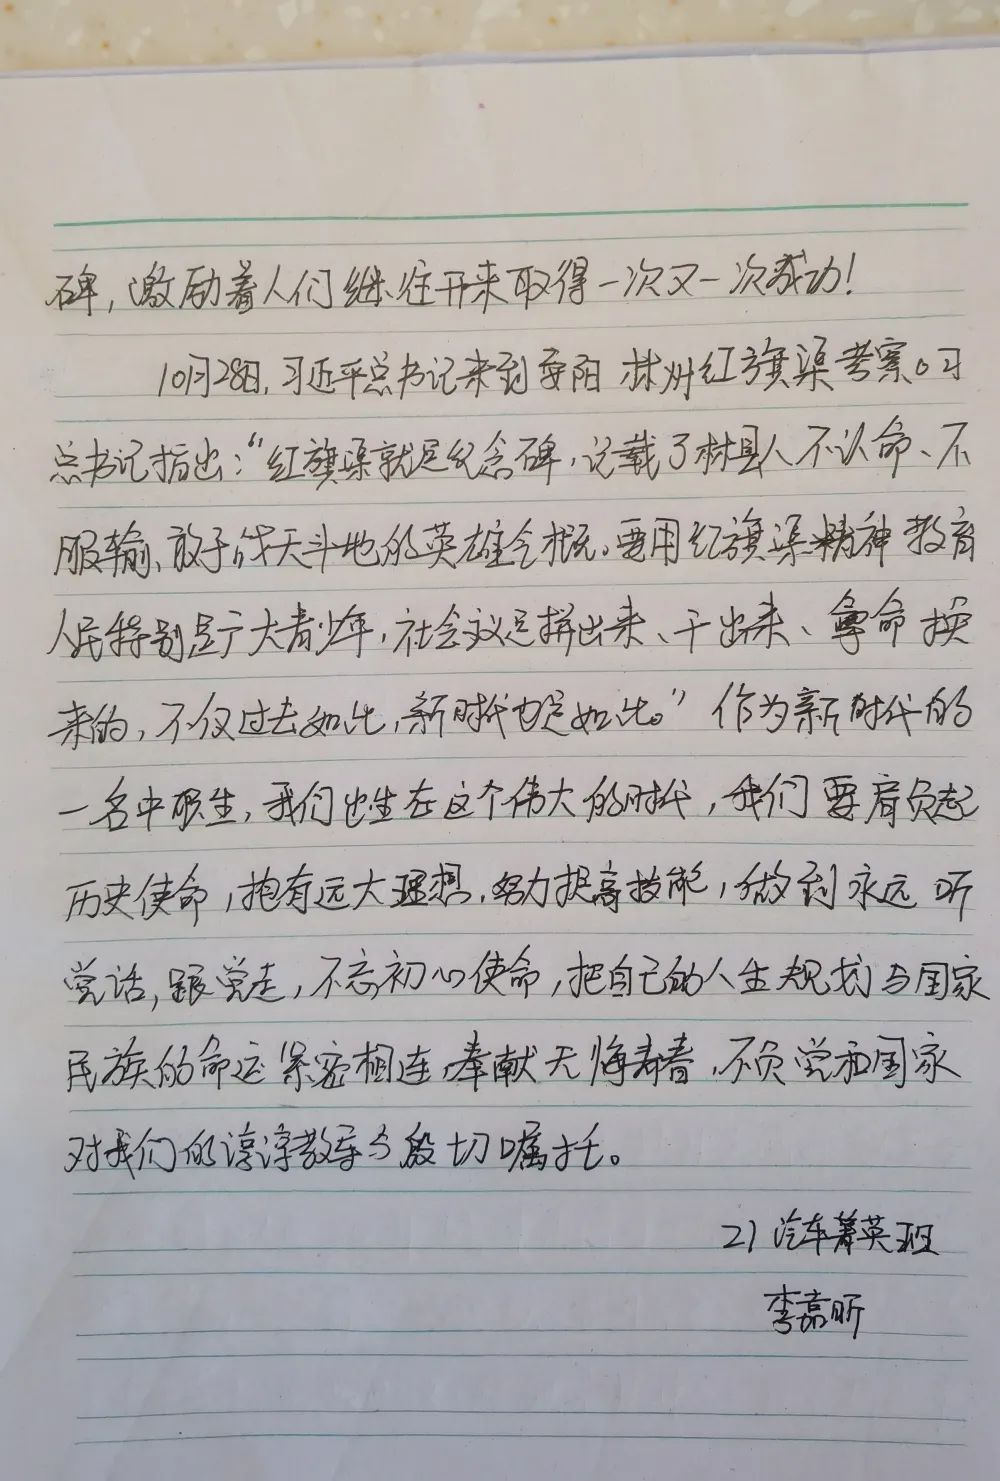 碑，激励着人们继往开来取得一次又一次成功！
10月28日，习近平总书记来到安阳林州红旗渠考察。习
总书记指出：“红旗渠就是纪念碑，记载了林县人不认命、不
服输、敢于战天斗地的英雄气概。要用红旗渠精神教育
人民特别是广大青少年，社会主义是拼出来、干出来、拿命换
来的，不仅过去如此，新时代也是如此。”作为新时代的
一名中职生，我们出生在这个伟大的时代，我们要肩负起
历史使命，抱有远大理想，努力提高技能，做到永远听
党话，跟党走，不忘初心使命，把自己的人生规划与国家
民族的命运紧密相连，奉献无悔青春，不负党和国家
对我们的谆谆教导与殷切嘱托。
21汽车菁英班
李嘉昕